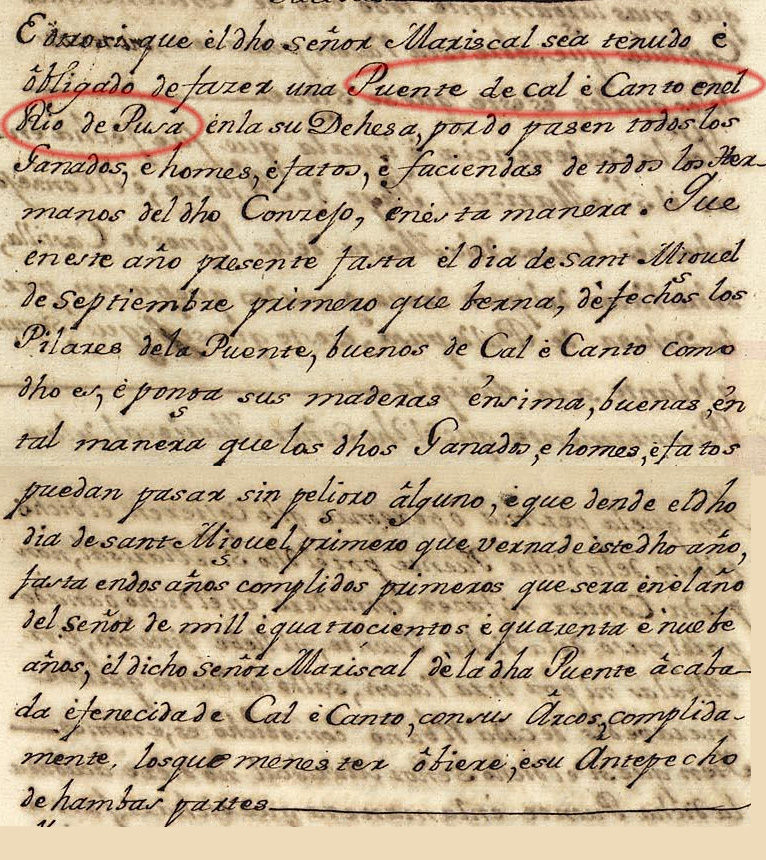 Otrosi que él dho señor Mariscal sea tenudo é
óbligado de fazer una Puente de cal é Canto enel
Rio de Pusa énla su Dehesa, por do pasen todos los
Ganados, é homes, é fatos, é faciendas de todos los Her-
manos del dho Conzejo, énésta manera. Que
éneste año presente fasta él dia de sant Miguel
de septiembre primero que berna, dé fechos los
Pilares dela Puente, buenos de Cal é Canto como
dho es, é ponga sus maderas énsima, buenas, én
tal manera que los dhos Ganados, e homes, é fatos
puedan pasar sin peligro álguno, é que dende el dho
dia de sant Miguel primero que verna de éste dho año,
fasta en dos años complidos primeros que sera én el año
del señor de mill é quatrocientos é quarenta é nuebe
años, él dicho señor Mariscal dé la dha Puente ácaba-
da é fenecida de Cal é Canto, con sus Arcos, complida-
mente, los que menester óbiere, é su Antepecho
de hambas partes